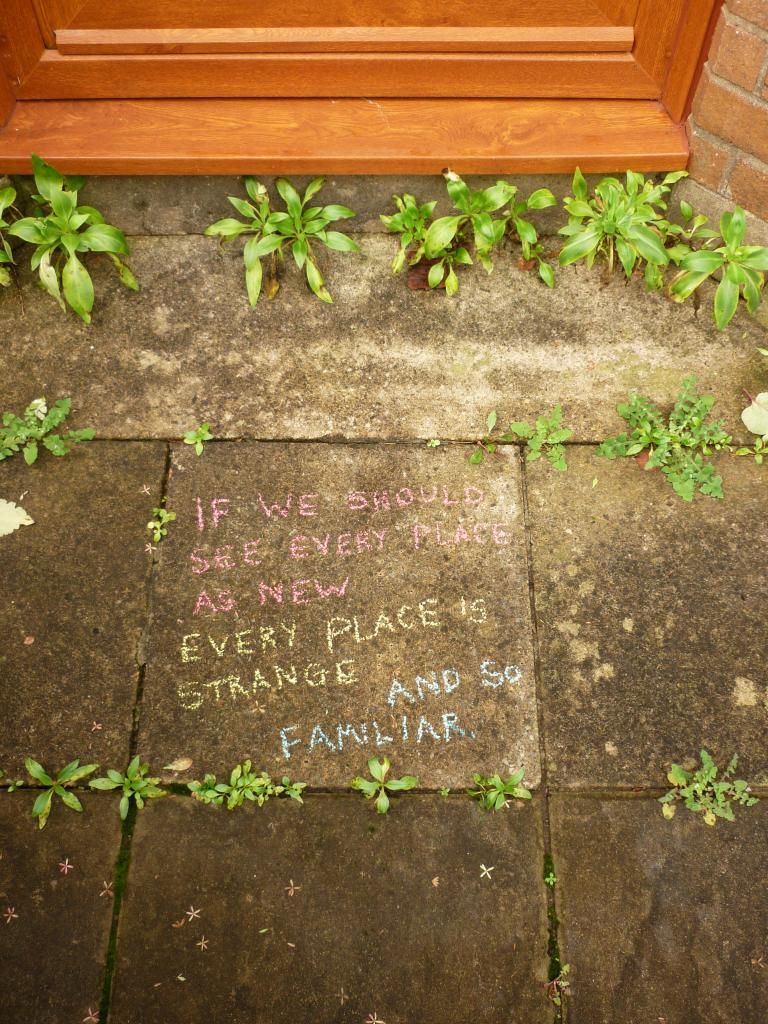 IF WE SHOULD
SEE EVERY PLACE
AS NEW
EVERY PLACE IS
STRANGE AND SO
FAMILIAR.